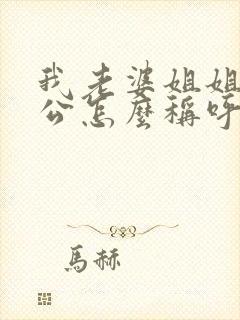 我老婆姐姐
公怎麼稱呼
馬赫